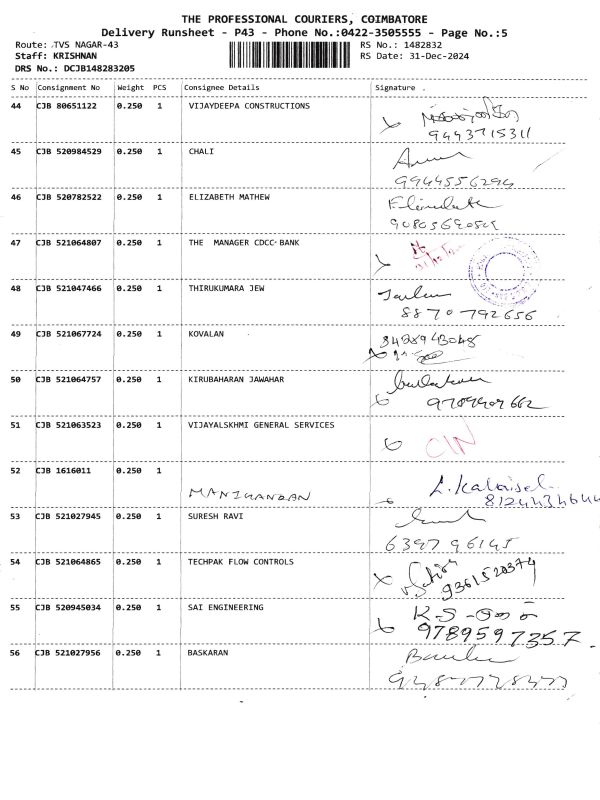 THE PROFESSIONAL COURIERS, COIMBATORE
Delivery Runsheet - P43 - Phone No.:0422-3505555 - Page No.:5
Route: TVS NAGAR-43 RS No.: 1482832
Staff: KRISHNAN RS Date: 31-Dec-2024
DRS No.: DCJB148283205
S No Consignment No Weight PCS Consignee Details Signature
44 CJB 80651122 0.250 1 VIJAYDEEPA CONSTRUCTIONS
9443715311
45 CJB 520984529 0.250 1 CHALI
9944556294
46 CJB 520782522 0.250 1 ELIZABETH MATHEW
47 CJB 521064807 0.250 1 THE MANAGER CDCC BANK
48 CJB 521047466 0.250 1 THIRUKUMARA JEW
8870792656
49 CJB 521067724 0.250 1 KOVALAN
50 CJB 521064757 0.250 1 KIRUBAHARAN JAWAHAR
51 CJB 521063523 0.250 1 VIJAYALSKHMI GENERAL SERVICES
52 CJB 1616011 0.250 1
MANIKANDAN
8124434644
53 CJB 521027945 0.250 1 SURESH RAVI
54 CJB 521064865 0.250 1 TECHPAK FLOW CONTROLS
9361520374
55 CJB 520945034 0.250 1 SAI ENGINEERING
9789597357
56 CJB 521027956 0.250 1 BASKARAN